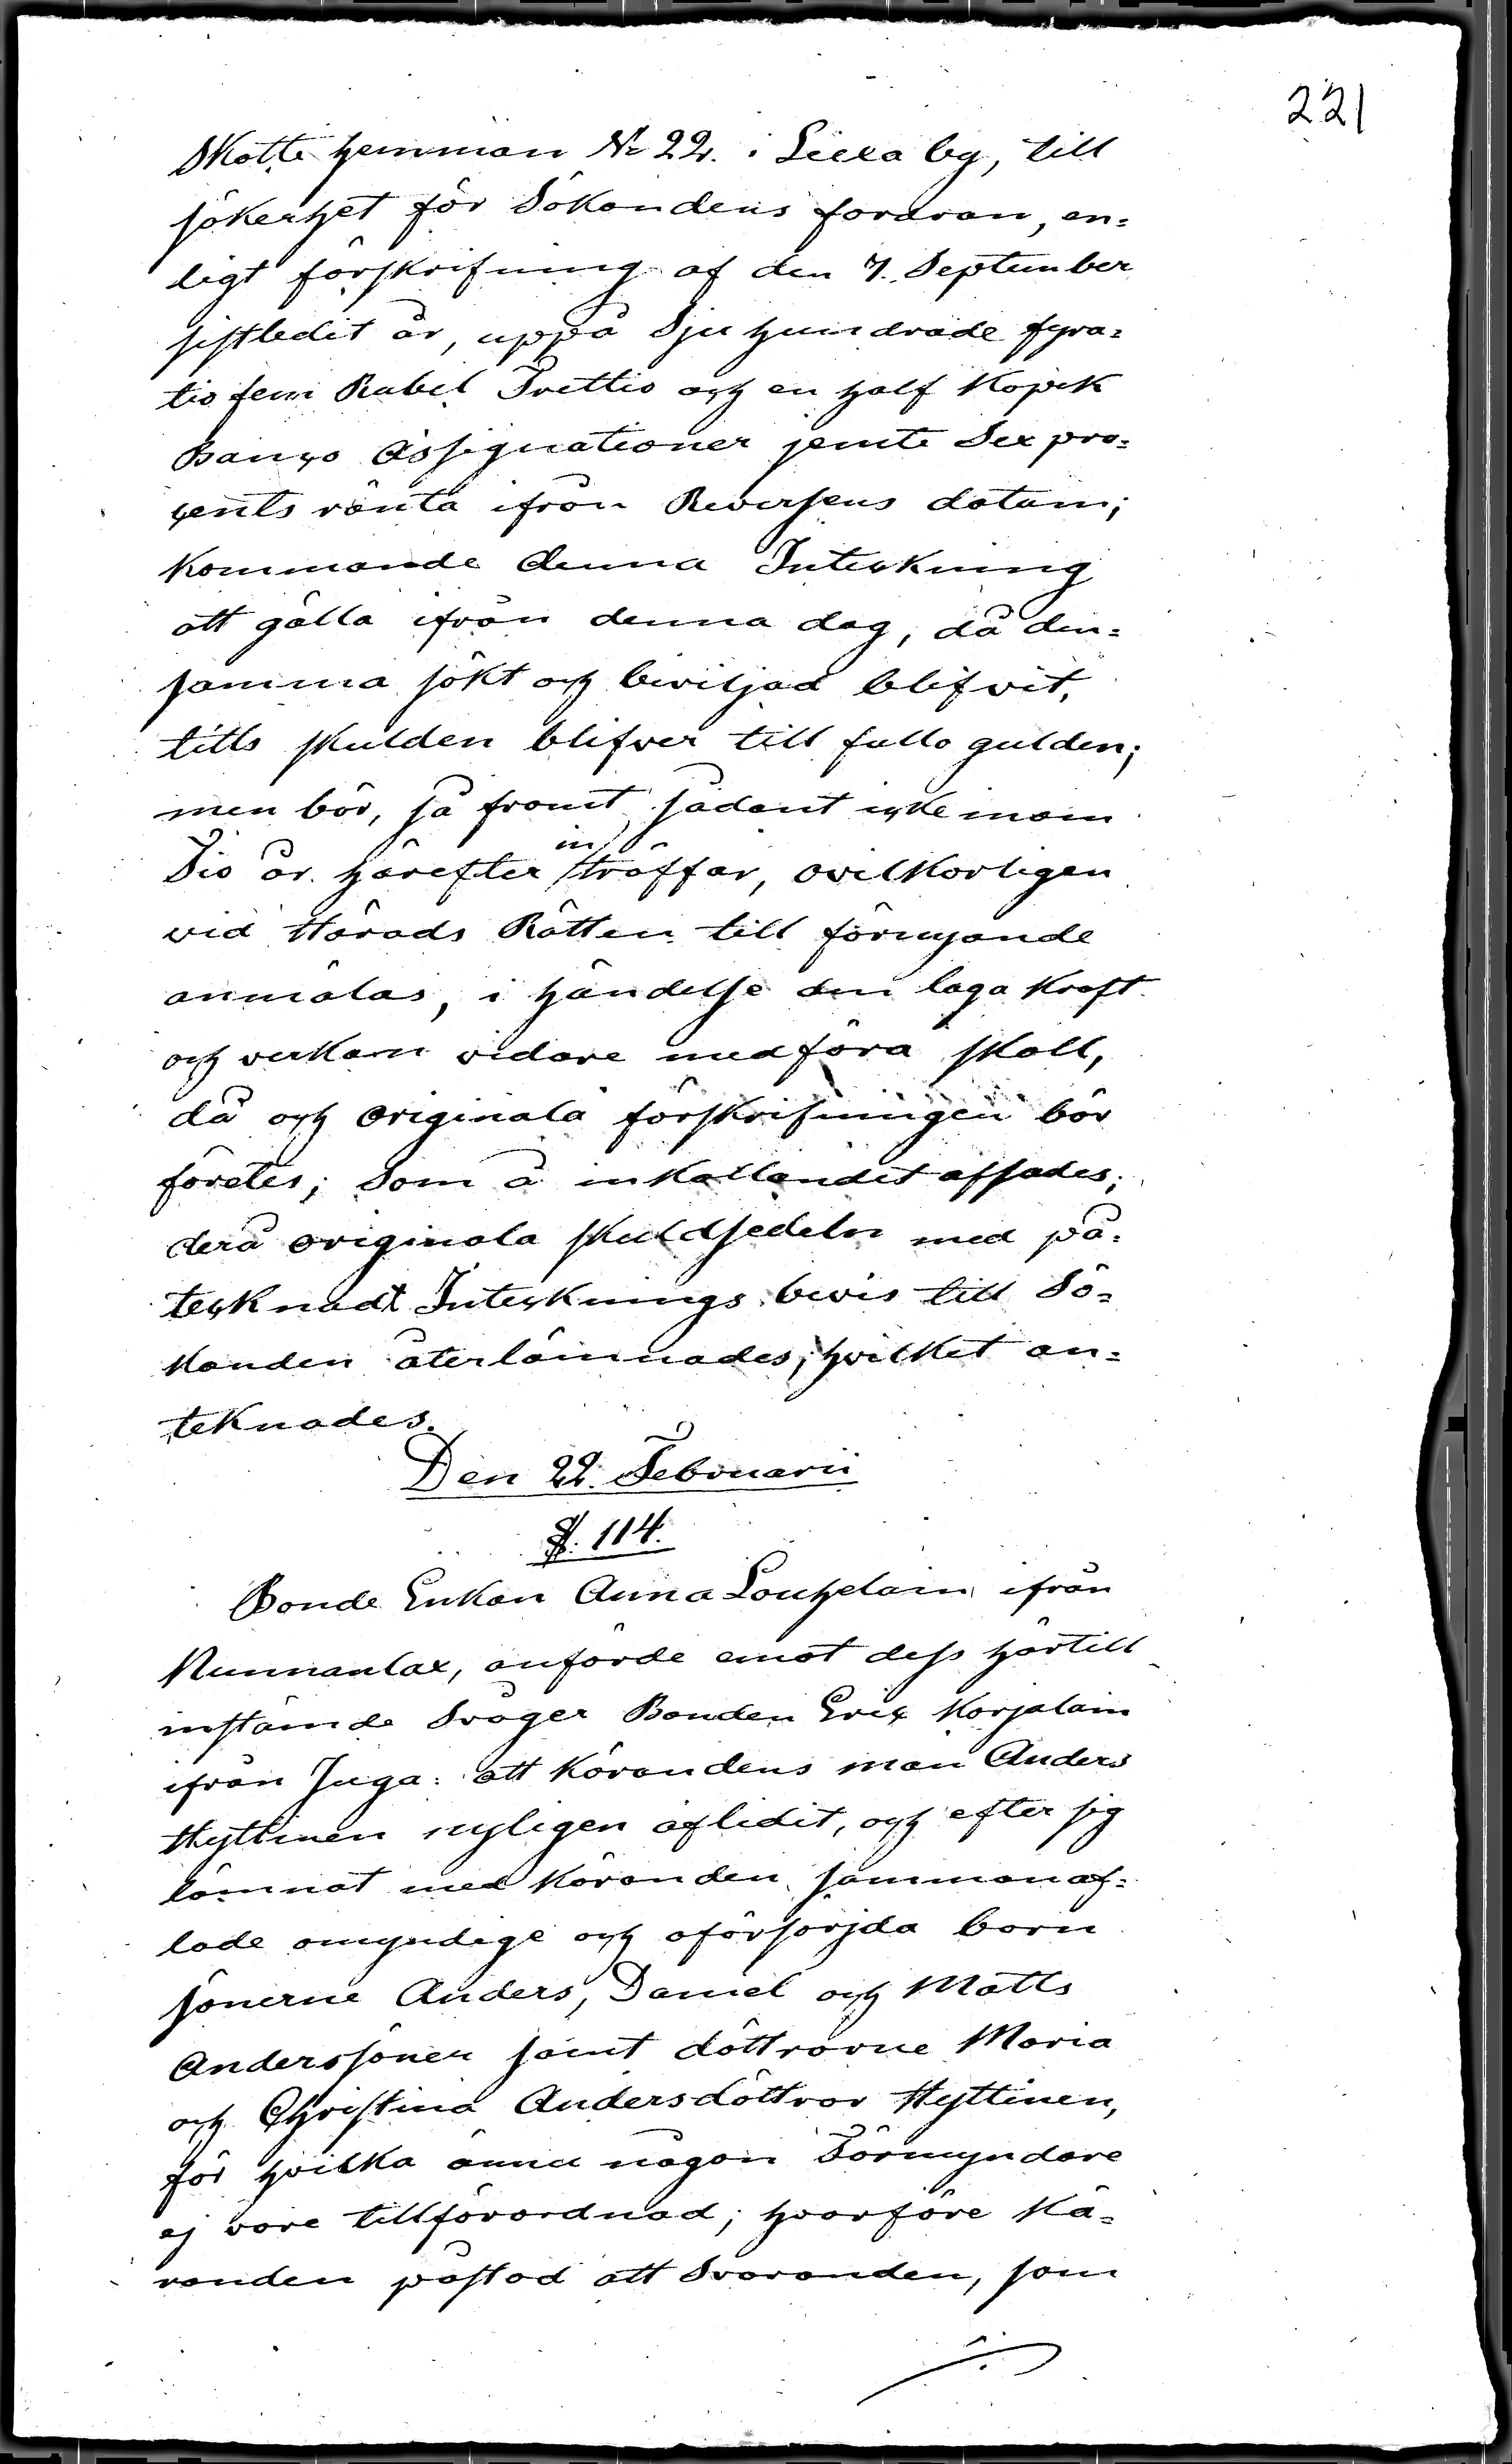 221
Skatte hemman No 22. i Liexa by, till
säkerhet för Sökandens fordran, en=
ligt förskrifning af den 7. September
sistledit år, uppå Sju hundrade fyra=
tio fem Rubel Trettio och en half Kopek
Banco Assignationer jemte Sex pro=
cents ränta ifrån Reversens datum;
kommande denna Inteckning
att gälla ifrån denna dag, då den=
samma sökt och beviljad blifvit,
tills skulden blifver till fullo gulden;
men bör, så framt sådant icke inom
Tio år härefter inträffar, ovilkorligen
vid Härads Rätten till förnyande
anmälas, i händelse den laga kraft
och verkan vidare medföra skall,
då och originala förskrifningen bör
företes; Som å inkallandet afsades;
derå originala skuldsedeln med på=
tecknadt Intecknings bevis till Sö=
kanden återlämnades, hvilket an=
teknades.
Den 22. Februarii
§. 114.
Bonde Enkan Anna Louhelain ifrån
Nunnanlax, anförde emot dess härtill
instämde Svåger Bonden Eric Korjalain
ifrån Juga: att Kärandens man Anders
Hyttinen nyligen aflidit, och efter sig
lämnat med Käranden samman af=
lade omyndige och oförsörjda barn
sönerne Anders, Daniel och Matts
Anderssöner samt döttrarne Maria
och Christina Andersdöttrar Hyttinen,
för hvilka ännu någon Förmyndare
ej vore tillförordnad; hvarföre Kä=
randen påstod att Svaranden, som